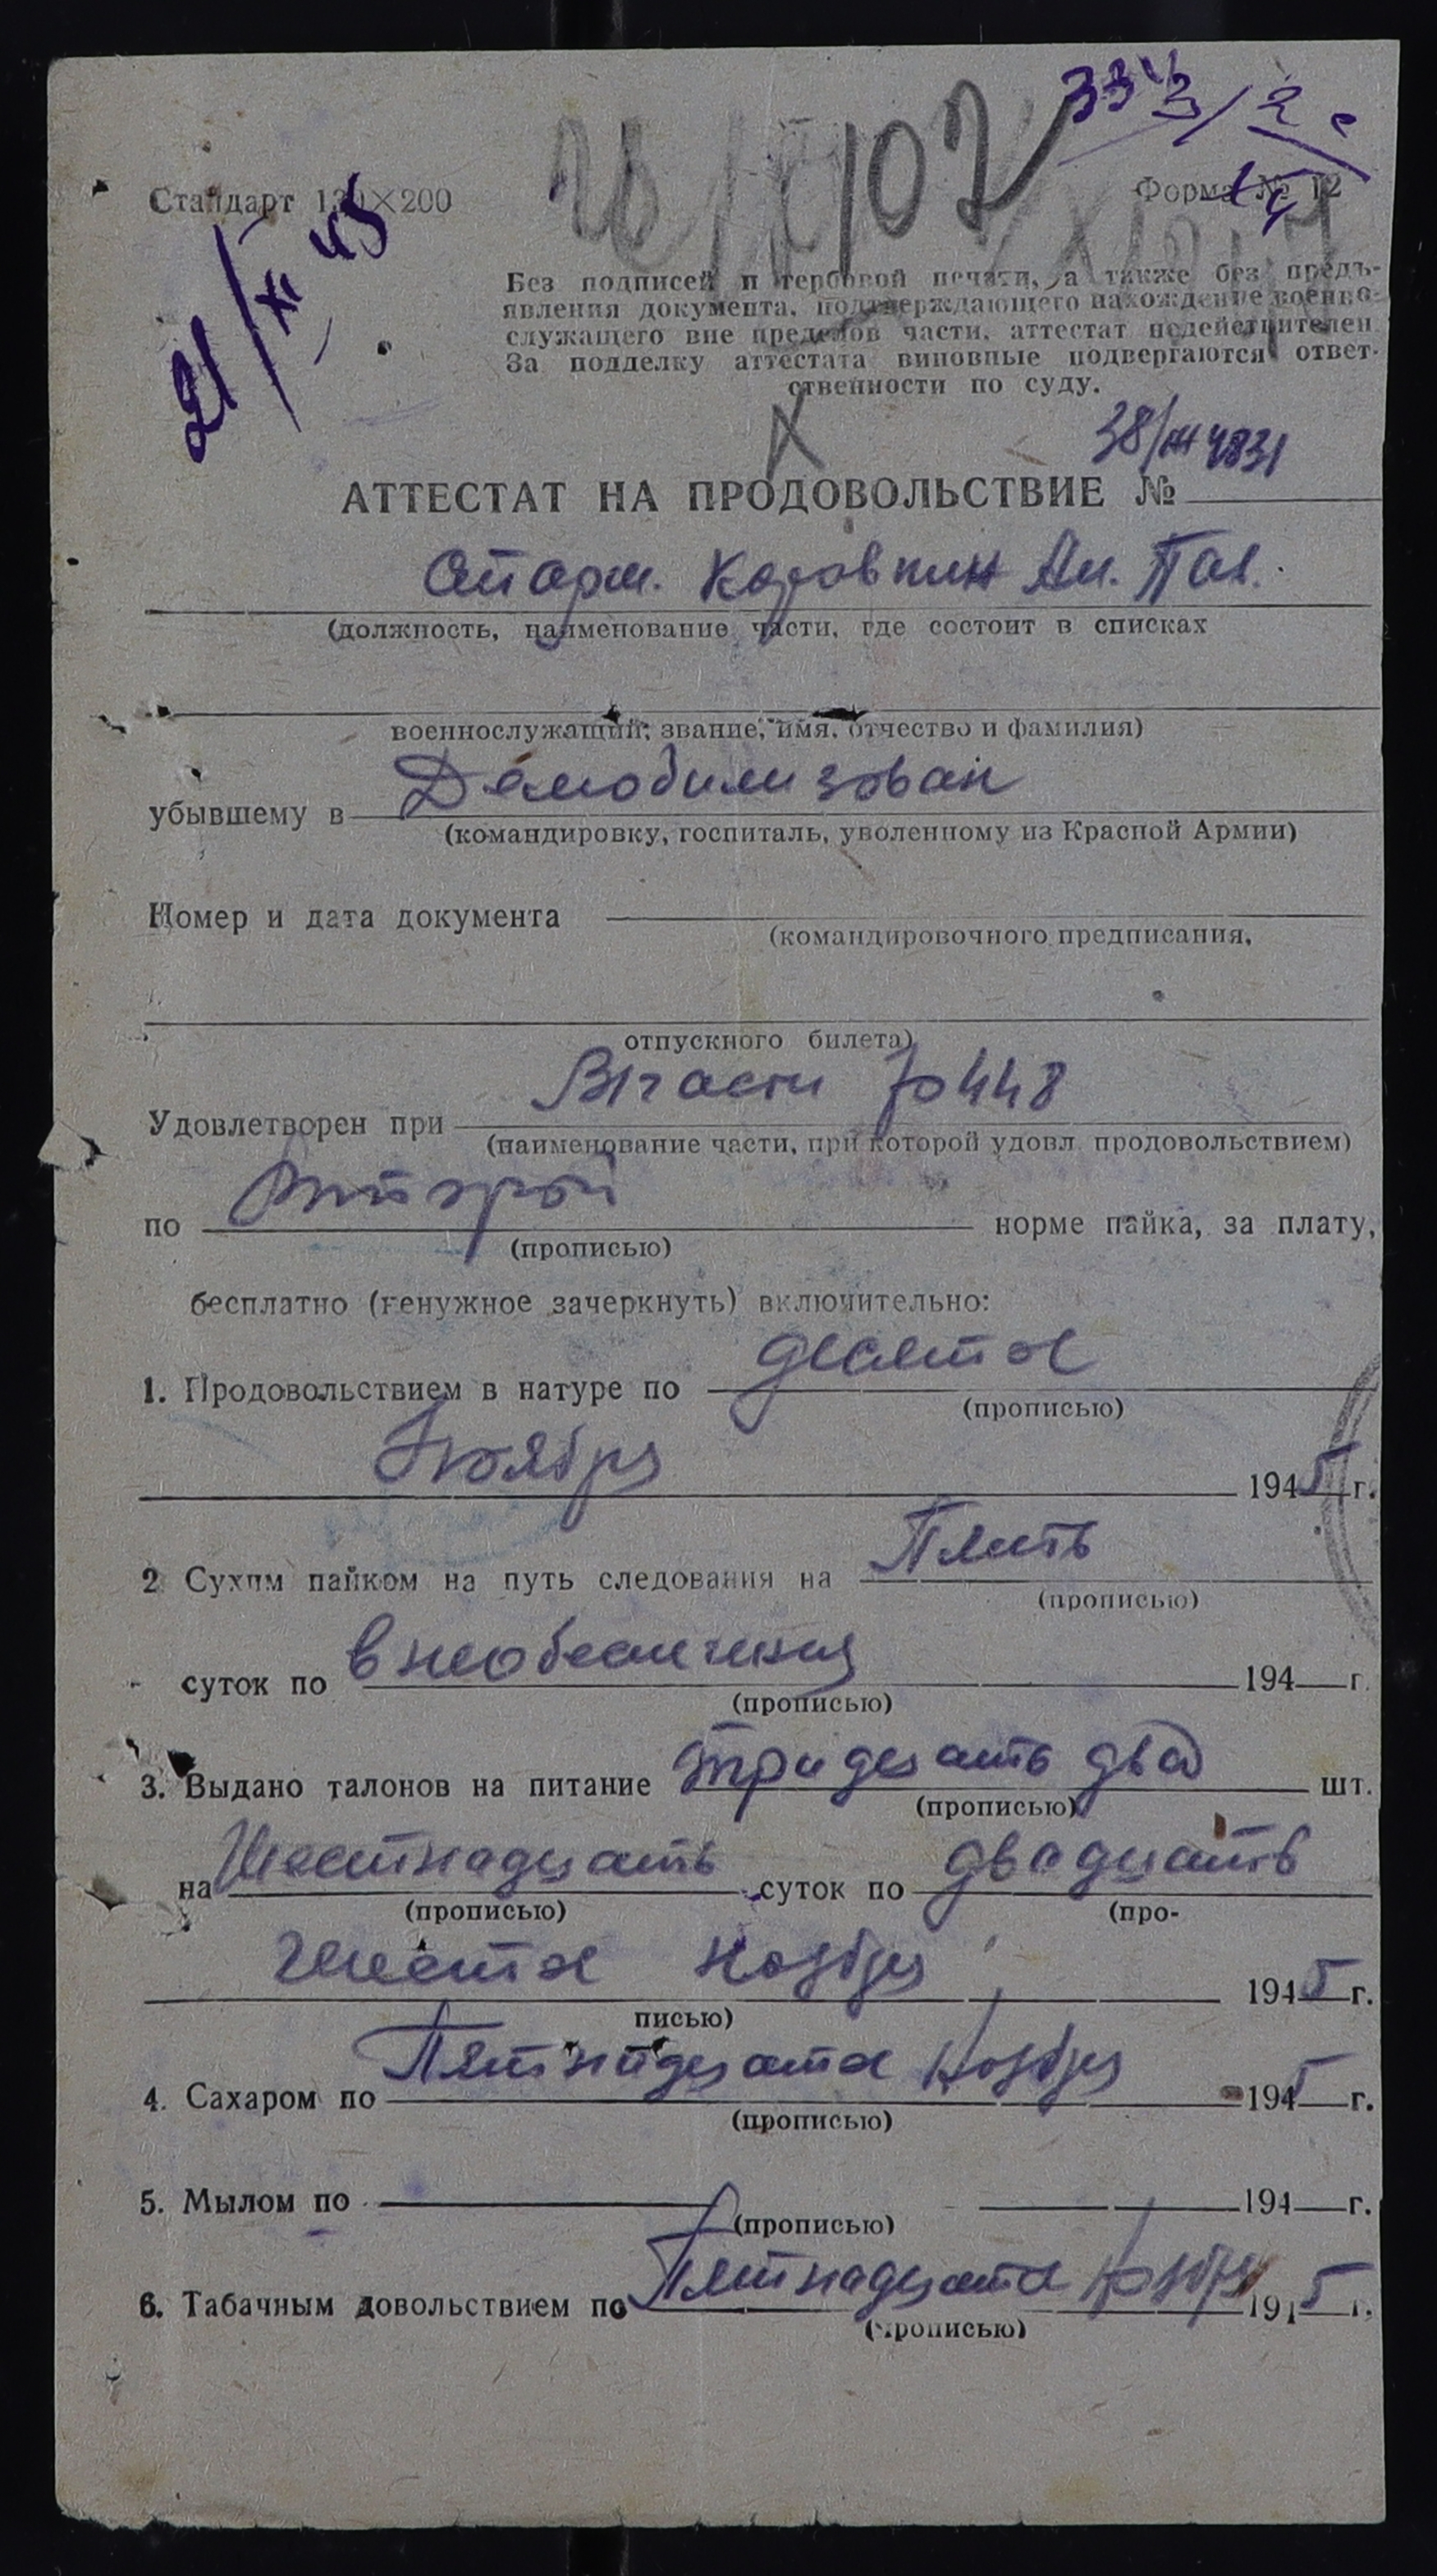 107
21/XI 45
Стандарт 130×200
Форма № 12
Без подписей и гербовой печати, а также без предъ-
явления документа, подтверждающего нахождение военно-
служащего вне пределов части, аттестат недействителен
За подделку аттестата виновные подвергаются ответ-
ственности по суду.
38/III 4831
АТТЕСТАТ НА ПРОДОВОЛЬСТВИЕ №
Старш. Ан. Пав.
(должность, наименование части, где состоит в списках
военнослужащий; звание, имя, отчество и фамилия)
убывшему в Демобилизован
(командировку, госпиталь, уволенному из Красной Армии)
Номер и дата документа
(командировочного предписания,
отпускного билета)
Удовлетворен при В/части 70448
(наименование части, при которой удовл. продовольствием)
по Второй норме пайка, за плату,
(прописью)
бесплатно (ненужное зачеркнуть) включительно:
1. Продовольствием в натуре по десятое
(прописью)
Ноября 1945 г.
2 Сухим пайком на путь следования на Пять
(прописью)
суток по 194 г.
(прописью)
3. Выдано талонов на питание тридцать два шт.
(прописью)
на Шестнадцать суток по двадцать
(прописью) (про-
шестое ноября 1945 г.
писью)
4. Сахаром по Пятнадцатое Ноября 1945 г.
(прописью)
5. Мылом по 194 г.
(прописью)
6. Табачным довольствием по Пятнадцатое Ноября 1945 г.
(прописью)